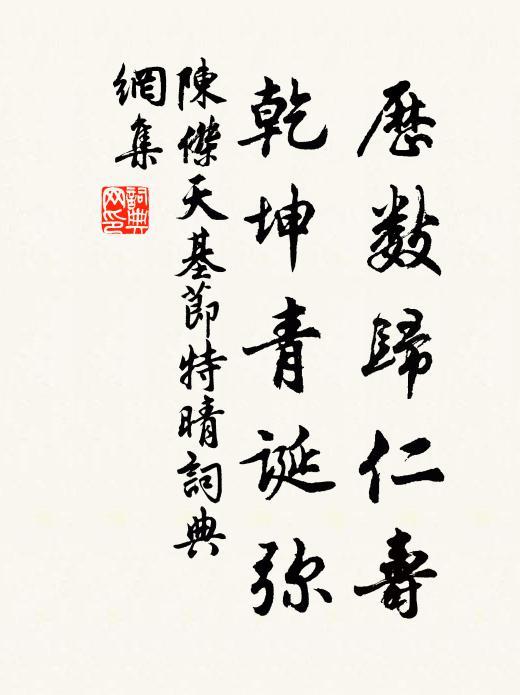 歷數歸仁壽
乾坤青誕弥
陳傑天基節特晴詞典
網集
詞典
网印